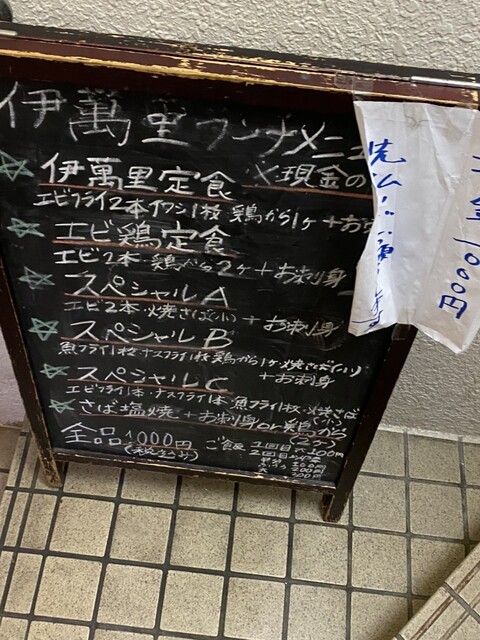 伊萬里ランチメニュ
☆伊萬里定食 ※現金の
エビフライ2本イワシ1枚 鶏から1ヶ+お
☆エビ鶏定食
エビ2本・鶏から2ヶ+お刺身
☆スペシャルA
エビ2本・焼さば(小)+お刺身
☆スペシャルB
魚フライ1枚 ナスフライ1枚 鶏から1ヶ・焼さば(小)
+お刺身
☆スペシャルC
エビフライ1本・ナスフライ1本・魚フライ1枚・焼さば(小)
☆さば塩焼+お刺身or鶏から(2ケ)
全品1000円
(税込み)
ご飯 1回目 大100円
2回目
300円
200円
300円
金1000円
先払い